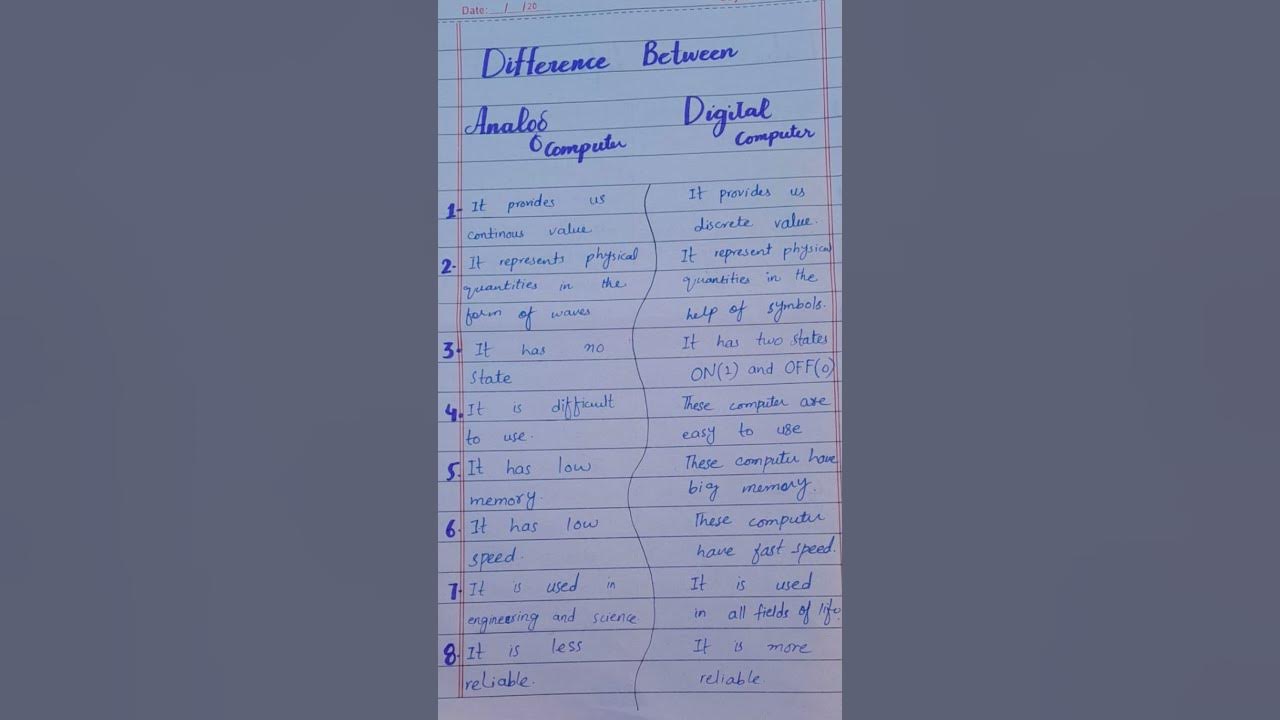 Date: __/__/20
Difference Between
Analog
Computer
Digital
Computer
1- It provides us
continous value
It provides us
discrete value.
2. It represents physical
quantities in the
form of waves
It represent physical
quantities in the
help of symbols.
3. It has no
State
It has two states
ON(1) and OFF(0)
4. It is difficult
to use.
These computer are
easy to use
5. It has low
memory.
These computer have
big memory.
6. It has low
speed.
These computer
have fast speed.
7. It is used in
engineering and science
It is used
in all fields of life.
8. It is less
reliable.
It is more
reliable.